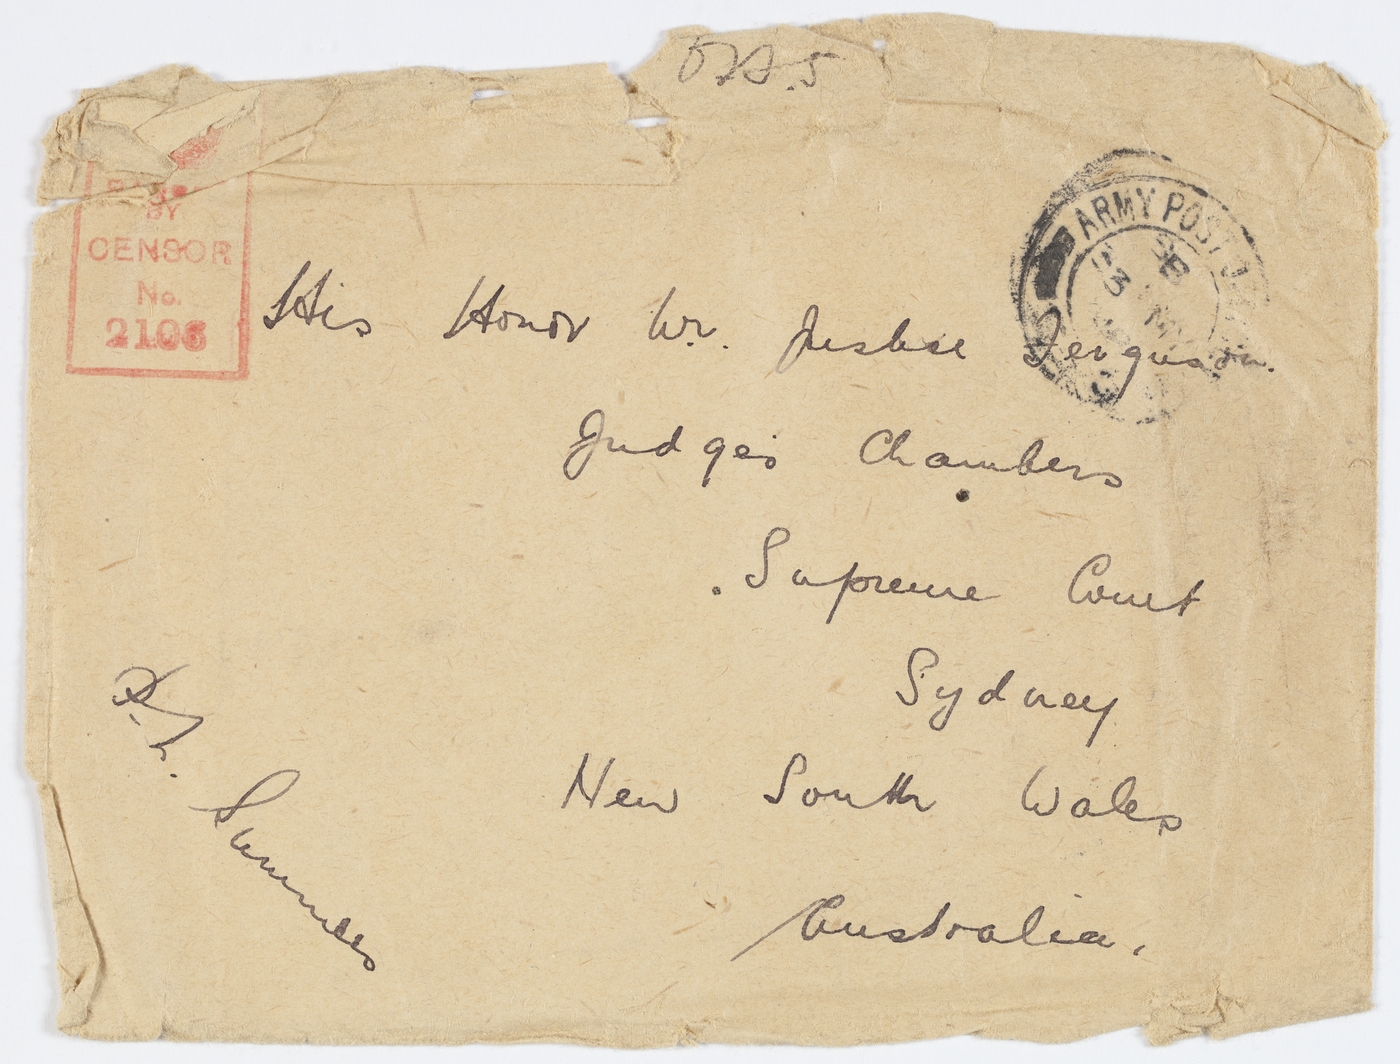 BY
CENSOR
No.
2106
ARMY POST
His Honor Mr. Justice Ferguson.
Judges Chambers
Supreme Court
Sydney
New South Wales
Australia.